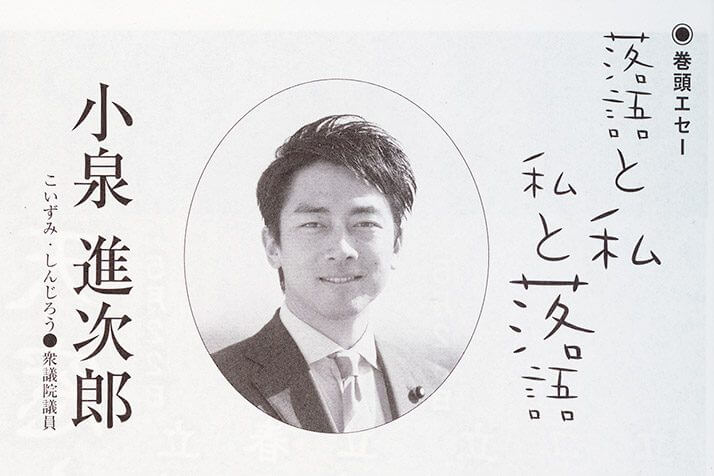 ◉巻頭エセー
落語と私
私と落語
小泉 進次郎
こいずみ・しんじろう●衆議院議員